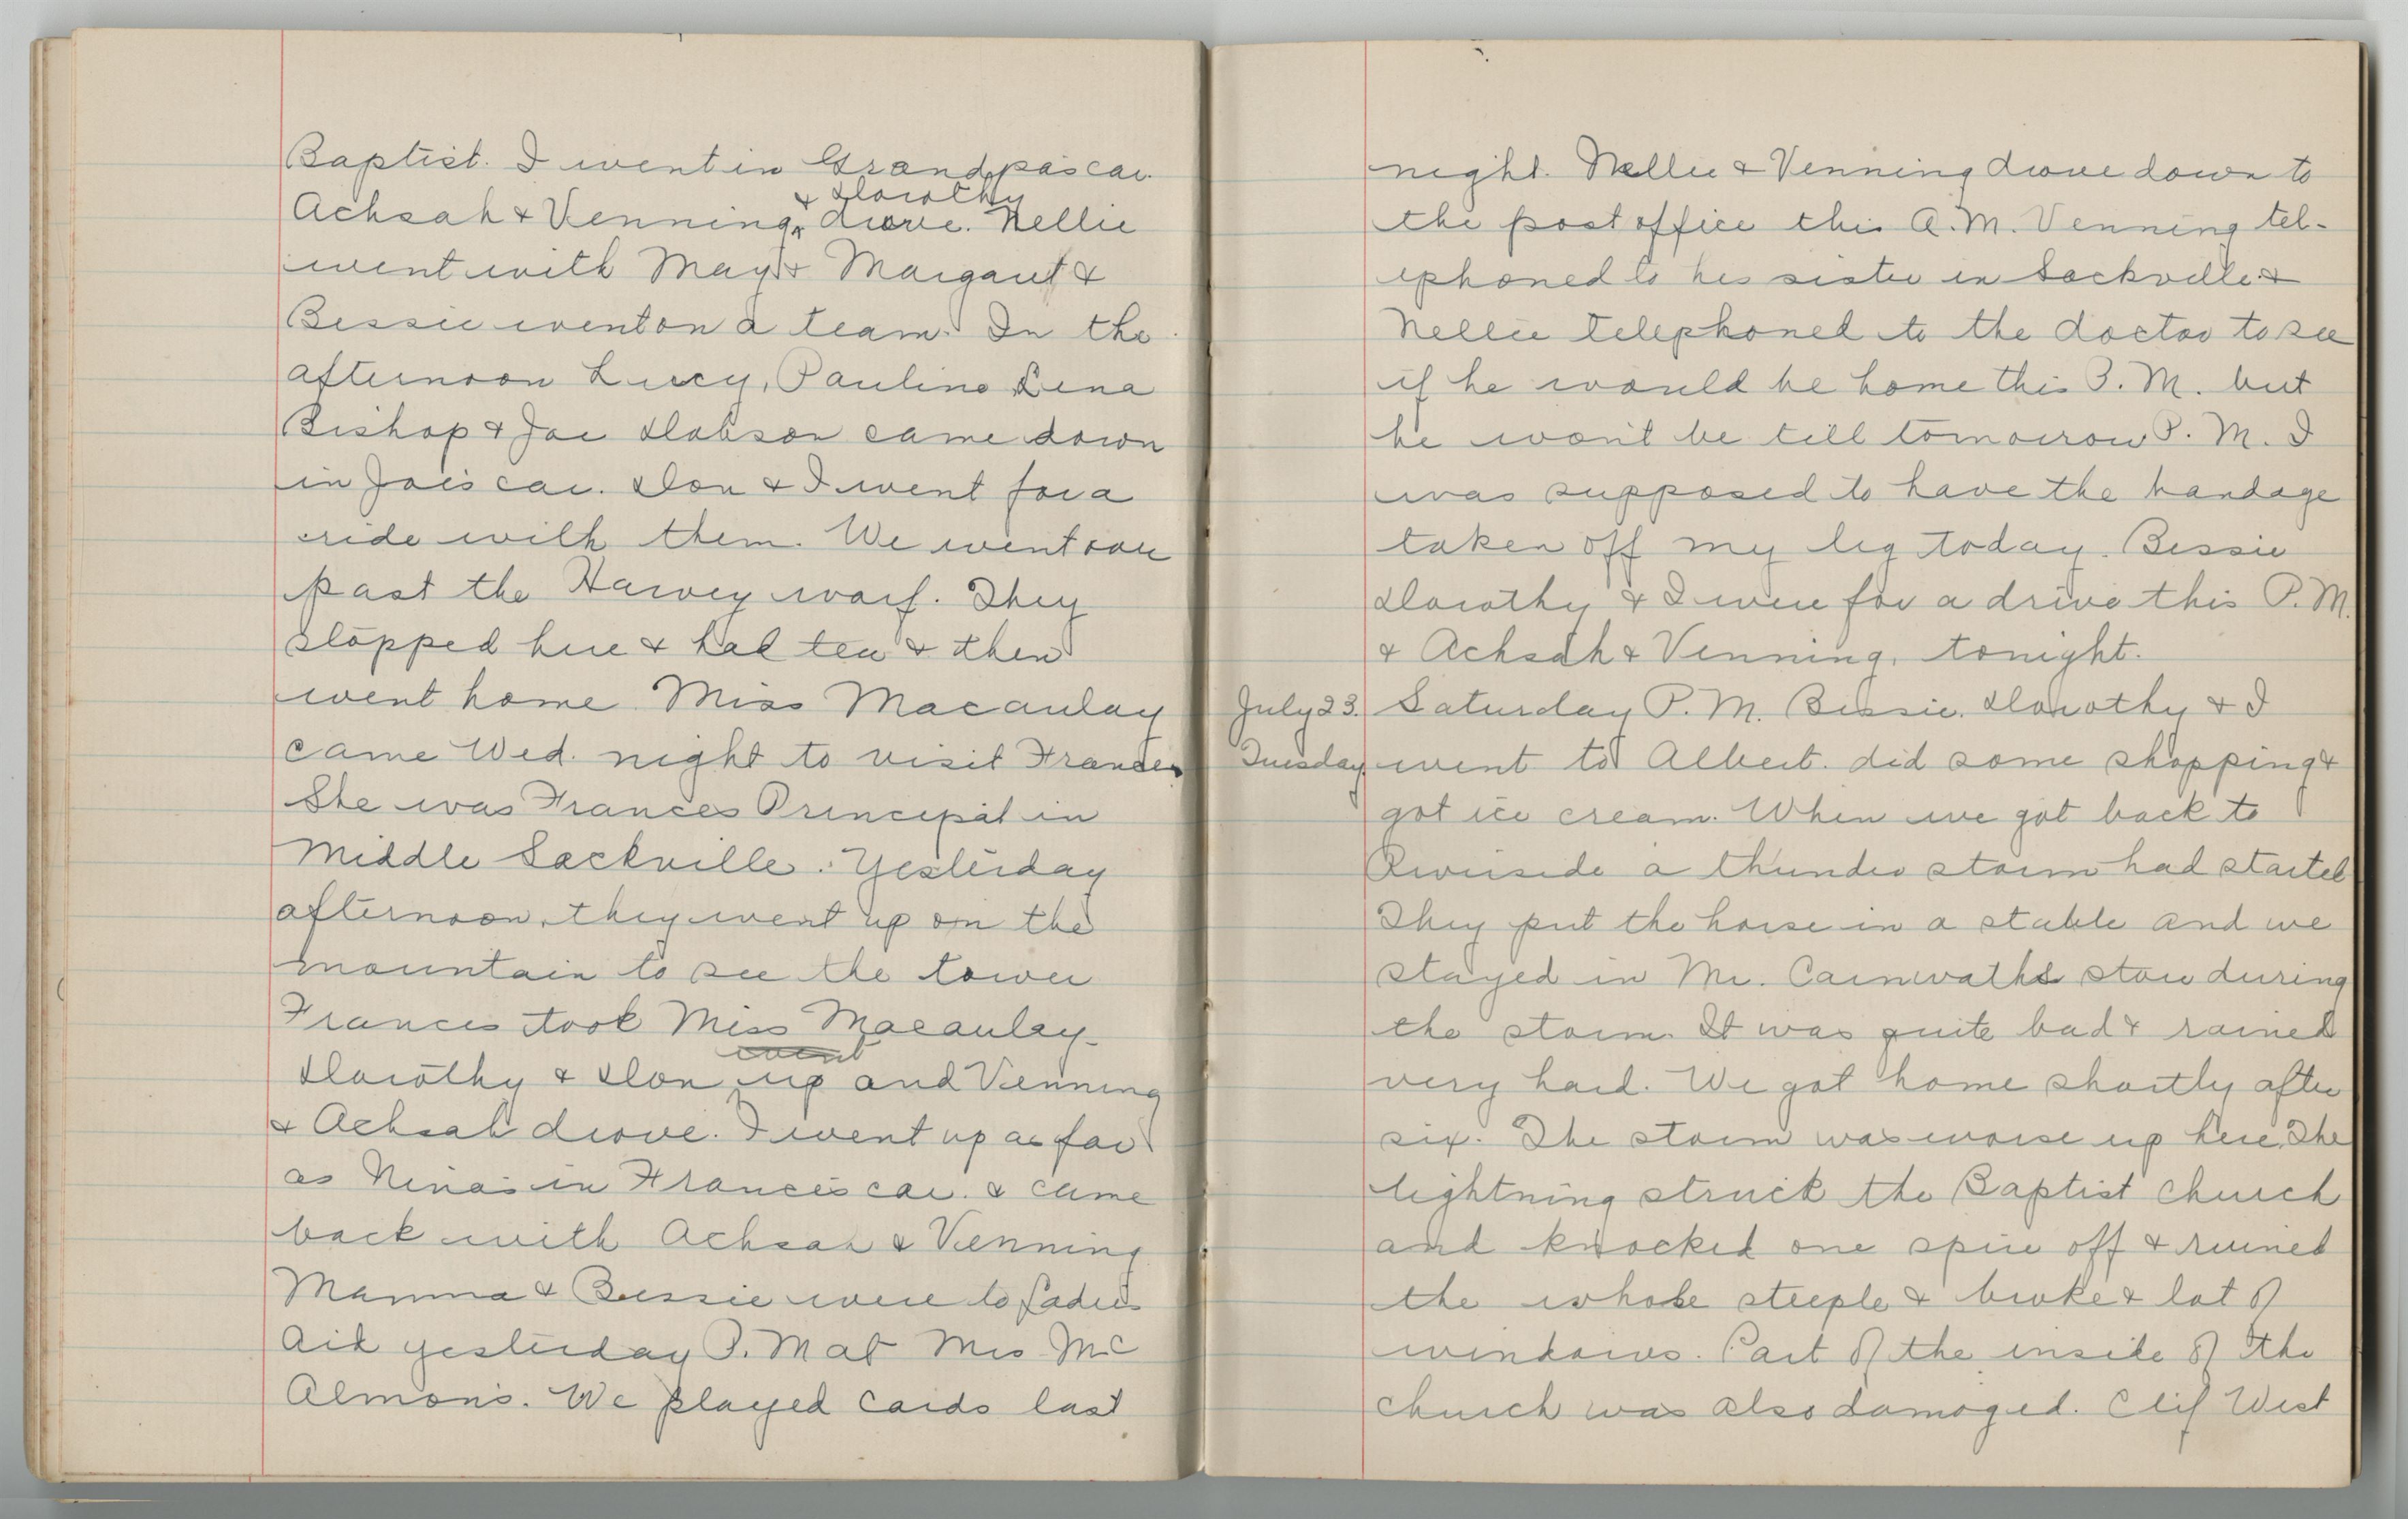 Baptist. I went in Grandpa's car.
& Dorothy
Achsah & Venning, drove. Nellie
went with May & Margaret &
Bessie went on a team. In the
afternoon Lucy, Pauline Lena
Bishop & Joe Dobson came down
in Joe's car. Don & I went for a
ride with them. We went over
past the Harvey warf. They
stopped here & had tea & then
went home. Miss Macaulay
came Wed. night to visit Frances
She was Frances Principal in
Middle Sackville. Yesterday
afternoon, they went up on the
mountain to see the tower
Frances took Miss Macaulay
went
Dorothy & Don up and Venning
& Achsah drove. I went up as far
as Nina's in Frances car. & came
back with Achsah & Venning
Mamma & Bessie were to Ladies
Aid yesterday P.M at Mrs Mc
Almon's. We played cards last
night. Nellie & Venning drove down to
the post office this A.M. Venning tel-
ephoned to his sister in Sackville &
Nellie telephoned to the doctor to see
if he would be home this P.M. but
he won't be till tomorrow P.M. I
was supposed to have the bandage
taken off my leg today. Bessie
Dorothy & I were for a drive this P.M.
& Achsah & Venning, tonight.
July 23. Saturday P.M. Bessie, Dorothy & I
Tuesday went to Albert. did some shopping &
got ice cream. When we got back to
Riverside a thunder storm had started
They put the horse in a stable and we
stayed in Mr. Carnwaths store during
the storm. It was quite bad & rained
very hard. We got home shortly after
six. The storm was worse up here. The
lightning struck the Baptist church
and knocked one spire off & ruined
the whole steeple & broke & lot of
windows. Part of the inside of the
church was also damaged. Clif West